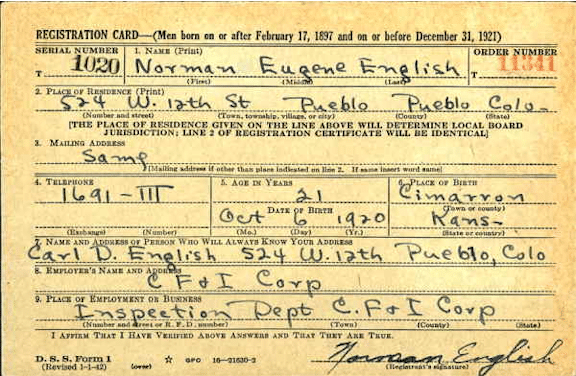 REGISTRATION CARD—(Men born on or after February 17, 1897 and on or before December 31, 1921)
SERIAL NUMBER 1. NAME (Print) ORDER NUMBER
T 1020 Norman Eugene English T 11341
(First) (Middle) (Last)
2. PLACE OF RESIDENCE (Print)
524 W. 12th St Pueblo Pueblo Colo-
(Number and street) (Town, township, village, or city) (County) (State)
[THE PLACE OF RESIDENCE GIVEN ON THE LINE ABOVE WILL DETERMINE LOCAL BOARD
JURISDICTION; LINE 2 OF REGISTRATION CERTIFICATE WILL BE IDENTICAL]
3. MAILING ADDRESS
Same
[Mailing address if other than place indicated on line 2. If same insert word same]
4. TELEPHONE 5. AGE IN YEARS 6. PLACE OF BIRTH
1691-III 21 Cimarron
DATE OF BIRTH (Town or county)
Oct 6 1920 Kans-
(Exchange) (Number) (Mo.) (Day) (Yr.) (State or country)
7. NAME AND ADDRESS OF PERSON WHO WILL ALWAYS KNOW YOUR ADDRESS
Carl D. English 524 W. 12th Pueblo, Colo
8. EMPLOYER'S NAME AND ADDRESS
C F & I Corp
9. PLACE OF EMPLOYMENT OR BUSINESS
Inspection Dept C. F & I Corp
(Number and street or R. F. D. number) (Town) (County) (State)
I AFFIRM THAT I HAVE VERIFIED ABOVE ANSWERS AND THAT THEY ARE TRUE.
D. S. S. Form 1 GPO 16—21630-2 Norman English
(Revised 1-1-42) (over) (Registrant's signature)